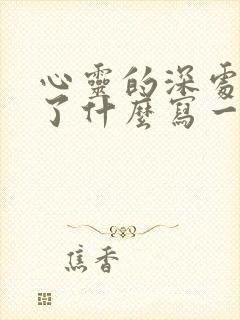 心靈的深處
了什麼寫一
焦香